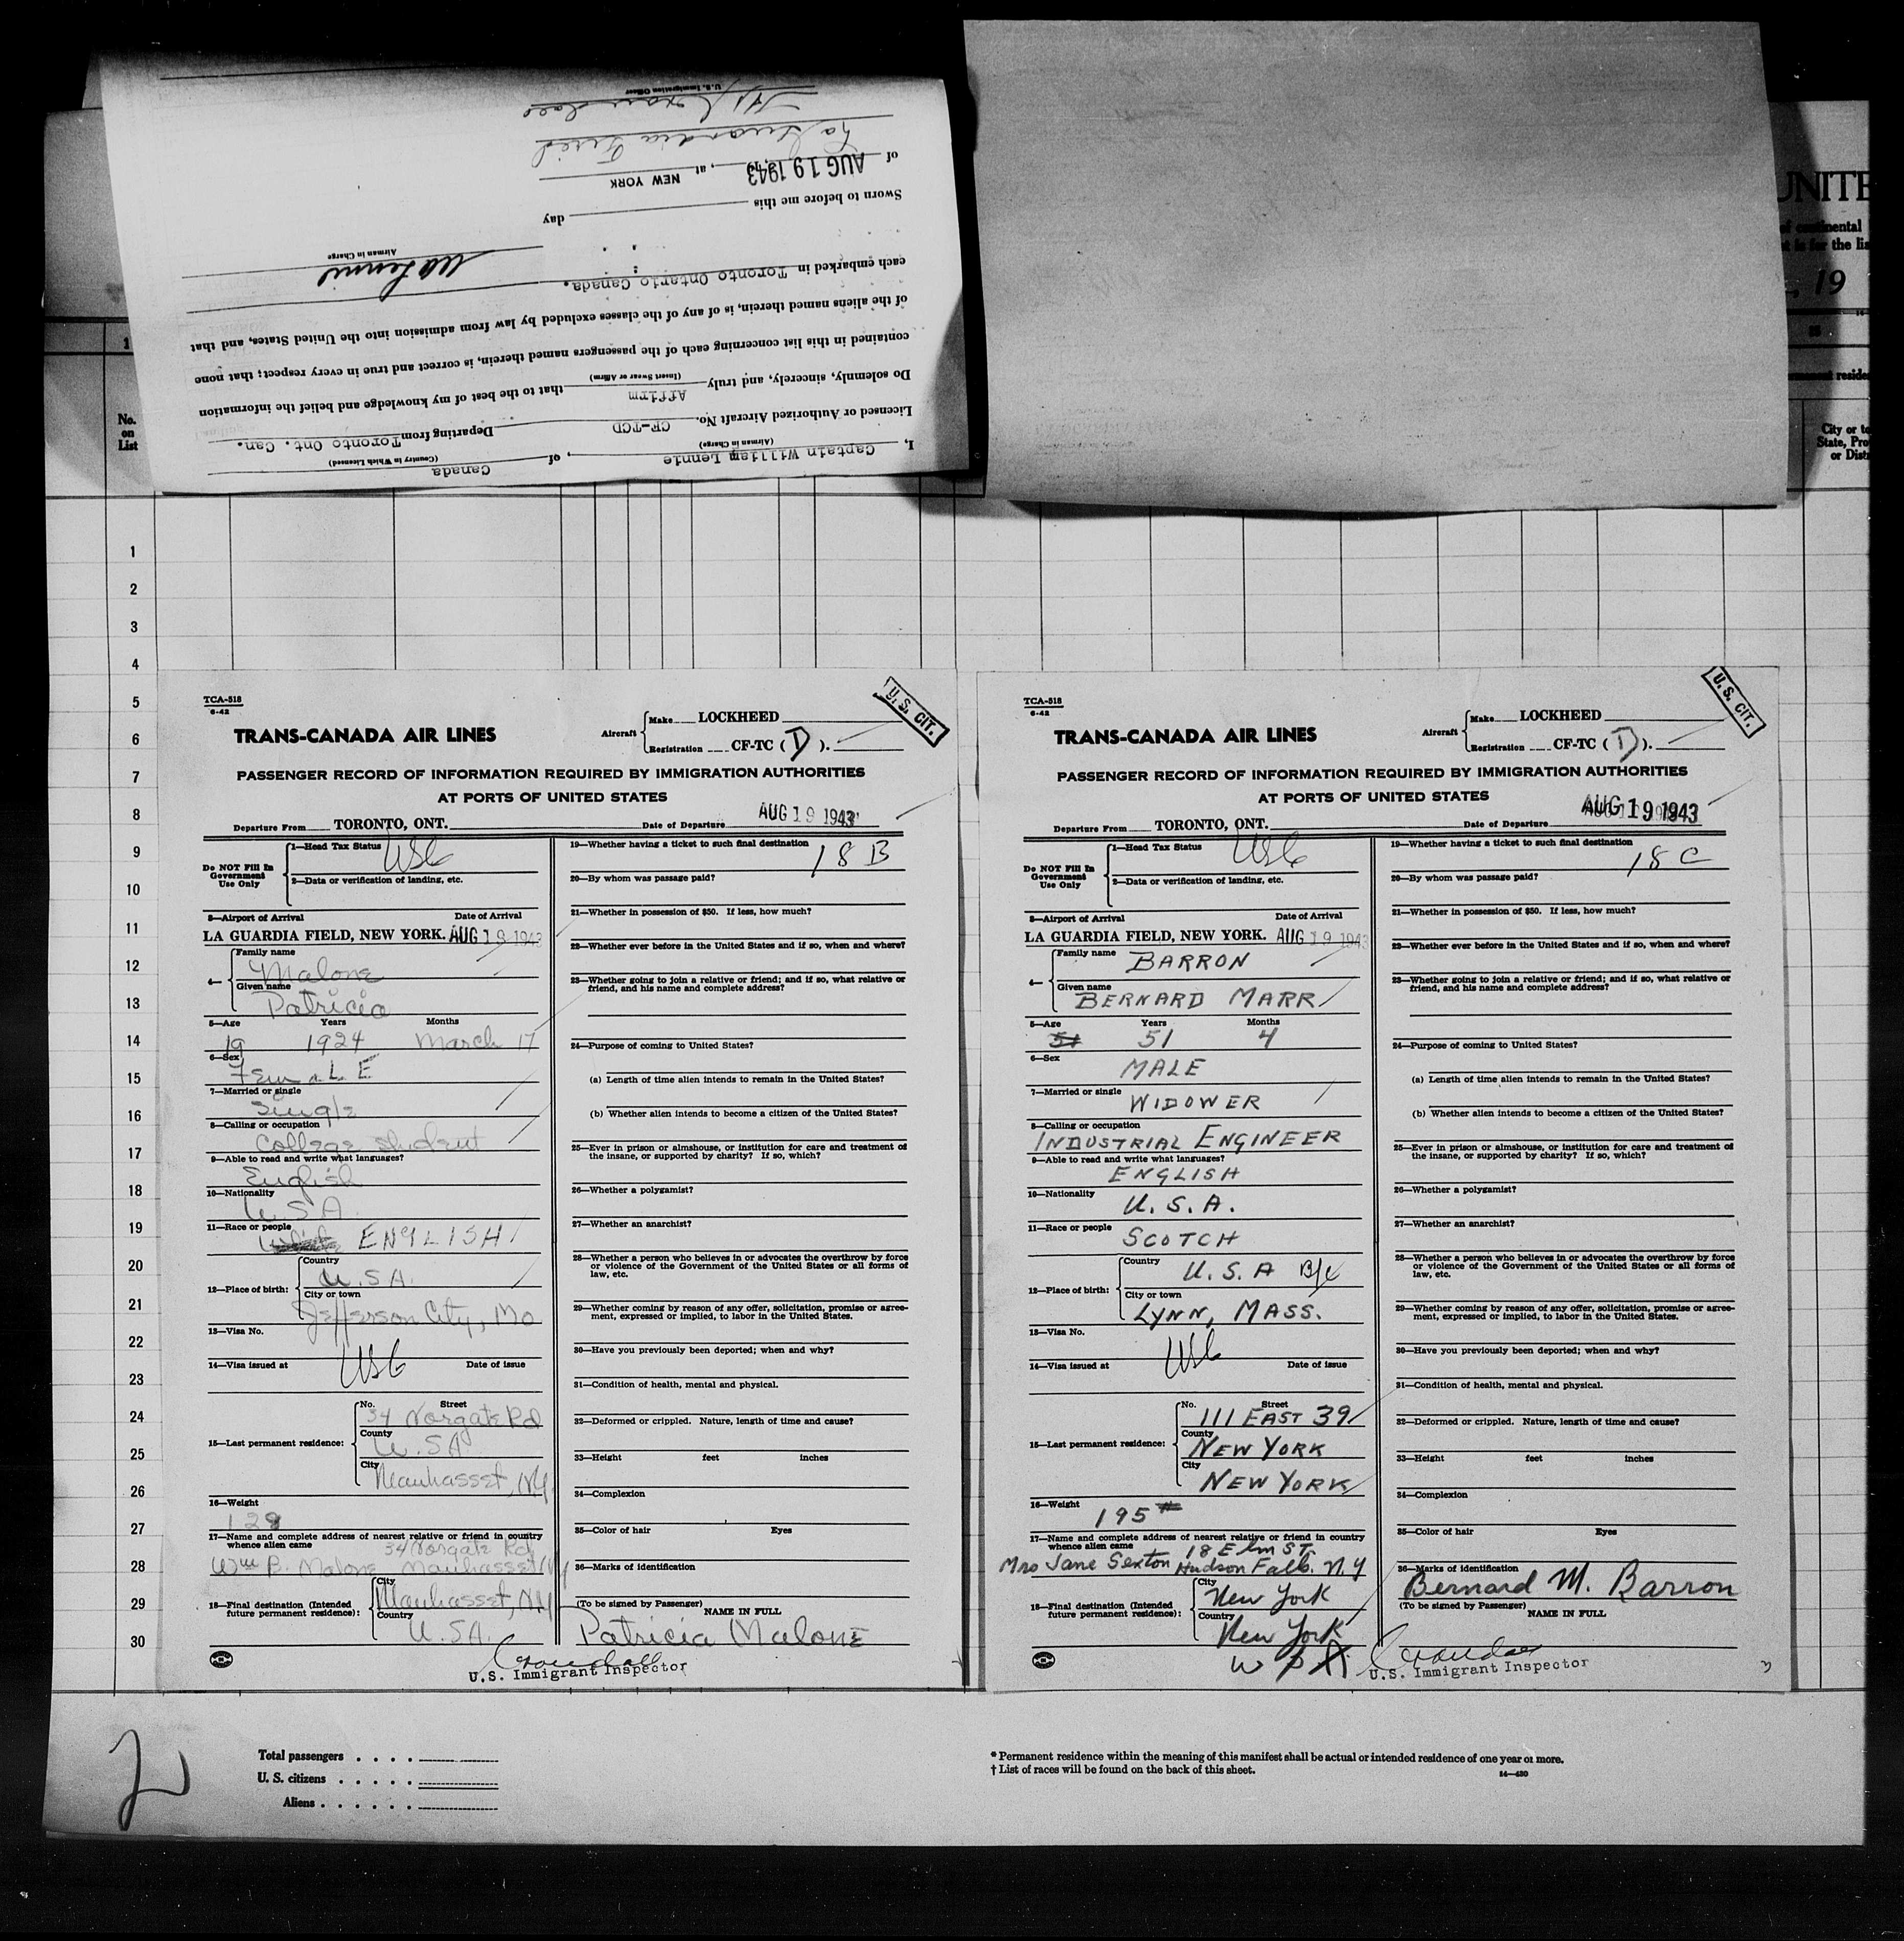 I, Captain William Lennie, of Canada
(Airman in Charge) (Country in Which Licensed)
Licensed or Authorized Aircraft No. CF-TCD Departing from Toronto Ont. Can.
Do solemnly, sincerely, and truly Affirm that to the best of my knowledge and belief the information
(Insert Swear or Affirm)
contained in this list concerning each of the passengers named therein, is correct and true in every respect; that none
of the aliens named therein, is of any of the classes excluded by law from admission into the United States, and that
each embarked in Toronto Ontario Canada.
Airman in Charge
Sworn to before me this day
of AUG 19 1943, 19 , at NEW YORK
La Guardia Field
U.S. Immigration Officer
UNITE
of continental
, 19
No.
on
List
City or to
State, Pro
or Dist
1
2
3
4
5
6
7
8
9
10
11
12
13
14
15
16
17
18
19
20
21
22
23
24
25
26
27
28
29
30
TCA-518
6-42
TRANS-CANADA AIR LINES
Aircraft Make LOCKHEED
Registration CF-TC ( D ).
U. S. CIT.
PASSENGER RECORD OF INFORMATION REQUIRED BY IMMIGRATION AUTHORITIES
AT PORTS OF UNITED STATES
Departure From TORONTO, ONT. Date of Departure AUG 19 1943
Do NOT Fill In
Government
Use Only
1—Head Tax Status USC
2—Data or verification of landing, etc.
3—Airport of Arrival Date of Arrival
LA GUARDIA FIELD, NEW YORK. AUG 19 1943
4— Family name
Malone
Given name
Patricia
5—Age Years Months
19 1924 March 17
6—Sex
FemaLE
7—Married or single
Single
8—Calling or occupation
College student
9—Able to read and write what languages?
English
10—Nationality
U.S.A.
11—Race or people
ENGLISH
12—Place of birth: Country
U.S.A.
City or town
Jefferson City, Mo
13—Visa No.
14—Visa issued at USC Date of issue
15—Last permanent residence: No. Street
34 Norgate Rd
County
U.S.A
City
Manhasset, N.Y.
16—Weight
128
17—Name and complete address of nearest relative or friend in country
whence alien came 34 Norgate Rd
Wm B. Malone Manhasset NY
18—Final destination (Intended
future permanent residence): City
Manhasset, N.Y.
Country
U.S.A.
19—Whether having a ticket to such final destination
18 B
20—By whom was passage paid?
21—Whether in possession of $50. If less, how much?
22—Whether ever before in the United States and if so, when and where?
23—Whether going to join a relative or friend; and if so, what relative or
friend, and his name and complete address?
24—Purpose of coming to United States?
(a) Length of time alien intends to remain in the United States?
(b) Whether alien intends to become a citizen of the United States?
25—Ever in prison or almshouse, or institution for care and treatment of
the insane, or supported by charity? If so, which?
26—Whether a polygamist?
27—Whether an anarchist?
28—Whether a person who believes in or advocates the overthrow by force
or violence of the Government of the United States or all forms of
law, etc.
29—Whether coming by reason of any offer, solicitation, promise or agree-
ment, expressed or implied, to labor in the United States.
30—Have you previously been deported; when and why?
31—Condition of health, mental and physical.
32—Deformed or crippled. Nature, length of time and cause?
33—Height feet inches
34—Complexion
35—Color of hair Eyes
36—Marks of identification
(To be signed by Passenger) NAME IN FULL
Patricia Malone
Crandall
U.S. Immigrant Inspector
TCA-518
6-42
TRANS-CANADA AIR LINES
Aircraft Make LOCKHEED
Registration CF-TC ( D ).
U. S. CIT.
PASSENGER RECORD OF INFORMATION REQUIRED BY IMMIGRATION AUTHORITIES
AT PORTS OF UNITED STATES
Departure From TORONTO, ONT. Date of Departure AUG 19 1943
Do NOT Fill In
Government
Use Only
1—Head Tax Status USC
2—Data or verification of landing, etc.
3—Airport of Arrival Date of Arrival
LA GUARDIA FIELD, NEW YORK. AUG 19 1943
4— Family name
BARRON
Given name
BERNARD MARR
5—Age Years Months
51 51 4
6—Sex
MALE
7—Married or single
WIDOWER
8—Calling or occupation
INDUSTRIAL ENGINEER
9—Able to read and write what languages?
ENGLISH
10—Nationality
U.S.A.
11—Race or people
SCOTCH
12—Place of birth: Country
U.S.A B/C
City or town
LYNN, MASS.
13—Visa No.
14—Visa issued at USC Date of issue
15—Last permanent residence: No. Street
111 EAST 39
County
NEW YORK
City
NEW YORK
16—Weight
195 #
17—Name and complete address of nearest relative or friend in country
whence alien came 18 Elm ST.
Mrs Jane Sexton Hudson Falls. N.Y
18—Final destination (Intended
future permanent residence): City
New York
Country
New York
19—Whether having a ticket to such final destination
18 C
20—By whom was passage paid?
21—Whether in possession of $50. If less, how much?
22—Whether ever before in the United States and if so, when and where?
23—Whether going to join a relative or friend; and if so, what relative or
friend, and his name and complete address?
24—Purpose of coming to United States?
(a) Length of time alien intends to remain in the United States?
(b) Whether alien intends to become a citizen of the United States?
25—Ever in prison or almshouse, or institution for care and treatment of
the insane, or supported by charity? If so, which?
26—Whether a polygamist?
27—Whether an anarchist?
28—Whether a person who believes in or advocates the overthrow by force
or violence of the Government of the United States or all forms of
law, etc.
29—Whether coming by reason of any offer, solicitation, promise or agree-
ment, expressed or implied, to labor in the United States.
30—Have you previously been deported; when and why?
31—Condition of health, mental and physical.
32—Deformed or crippled. Nature, length of time and cause?
33—Height feet inches
34—Complexion
35—Color of hair Eyes
36—Marks of identification
Bernard M. Barron
(To be signed by Passenger) NAME IN FULL
Crandall
U.S. Immigrant Inspector
2
Total passengers
U. S. citizens
Aliens
* Permanent residence within the meaning of this manifest shall be actual or intended residence of one year or more.
† List of races will be found on the back of this sheet.